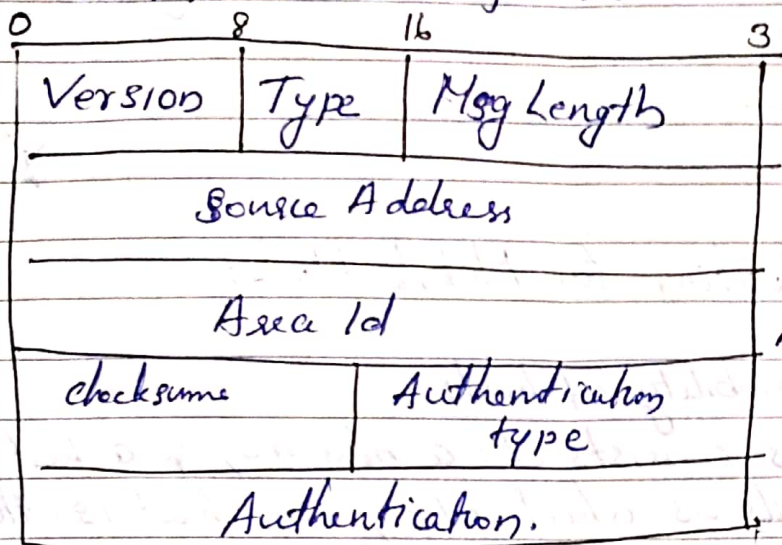 0 8 16 3
Version Type Msg Length
Source Address
Area Id
checksume Authentication
type
Authentication.